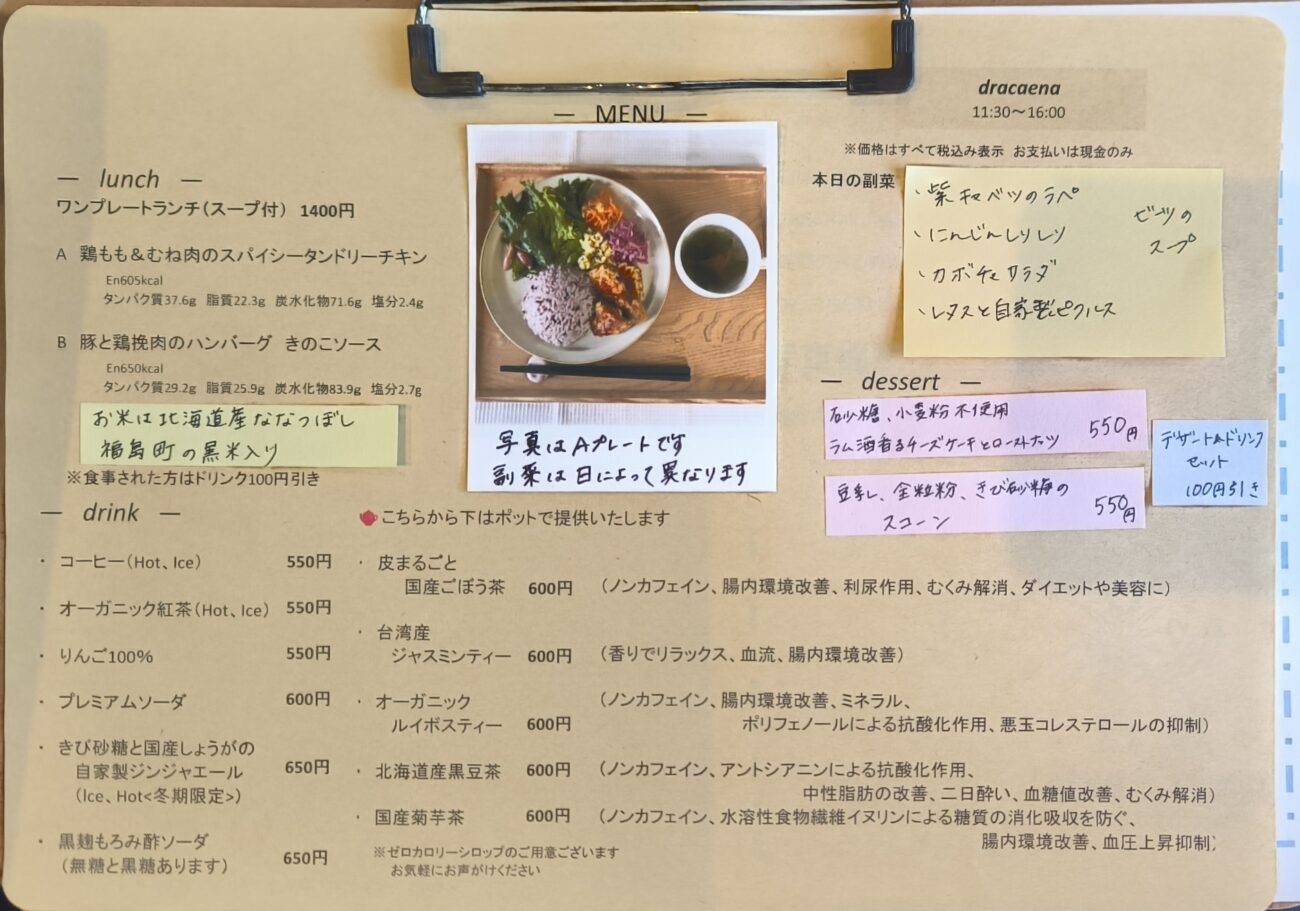 dracaena
11:30〜16:00
— MENU —
※価格はすべて税込み表示 お支払いは現金のみ
— lunch —
ワンプレートランチ(スープ付) 1400円
A 鶏もも&むね肉のスパイシータンドリーチキン
En605kcal
タンパク質37.6g 脂質22.3g 炭水化物71.6g 塩分2.4g
B 豚と鶏挽肉のハンバーグ きのこソース
En650kcal
タンパク質29.2g 脂質25.9g 炭水化物83.9g 塩分2.7g
お米は北海道産ななつぼし
福島町の黒米入り
※食事された方はドリンク100円引き
写真はAプレートです
副菜は日によって異なります
本日の副菜
・紫キャベツのラペ
・にんじんしりしり
・カボチャサラダ
・レタスと自家製ピクルス
ビーツの
スープ
— dessert —
砂糖、小麦粉不使用
ラム酒香るチーズケーキとローストナッツ 550円
豆乳、全粒粉、きび砂糖の
スコーン 550円
デザート&ドリンク
セット
100円引き
— drink —
・ コーヒー(Hot、Ice) 550円
・ オーガニック紅茶(Hot、Ice) 550円
・ りんご100% 550円
・ プレミアムソーダ 600円
・ きび砂糖と国産しょうがの
自家製ジンジャエール 650円
(Ice、Hot<冬期限定>)
・ 黒麹もろみ酢ソーダ
(無糖と黒糖あります) 650円
こちらから下はポットで提供いたします
・ 皮まるごと
国産ごぼう茶 600円 (ノンカフェイン、腸内環境改善、利尿作用、むくみ解消、ダイエットや美容に)
・ 台湾産
ジャスミンティー 600円 (香りでリラックス、血流、腸内環境改善)
・ オーガニック (ノンカフェイン、腸内環境改善、ミネラル、
ルイボスティー 600円 ポリフェノールによる抗酸化作用、悪玉コレステロールの抑制)
・ 北海道産黒豆茶 600円 (ノンカフェイン、アントシアニンによる抗酸化作用、
中性脂肪の改善、二日酔い、血糖値改善、むくみ解消)
・ 国産菊芋茶 600円 (ノンカフェイン、水溶性食物繊維イヌリンによる糖質の消化吸収を防ぐ、
腸内環境改善、血圧上昇抑制)
※ゼロカロリーシロップのご用意ございます
お気軽にお声がけください